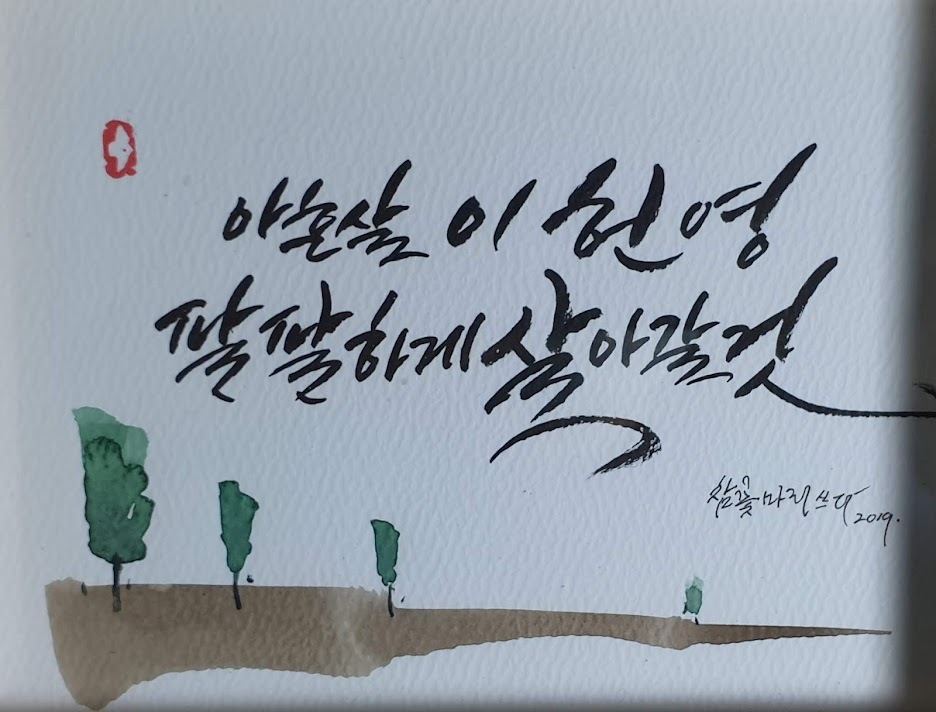 아흔살 이헌영
팔팔하게 살아갈것
참꽃마리 쓰다
2019.